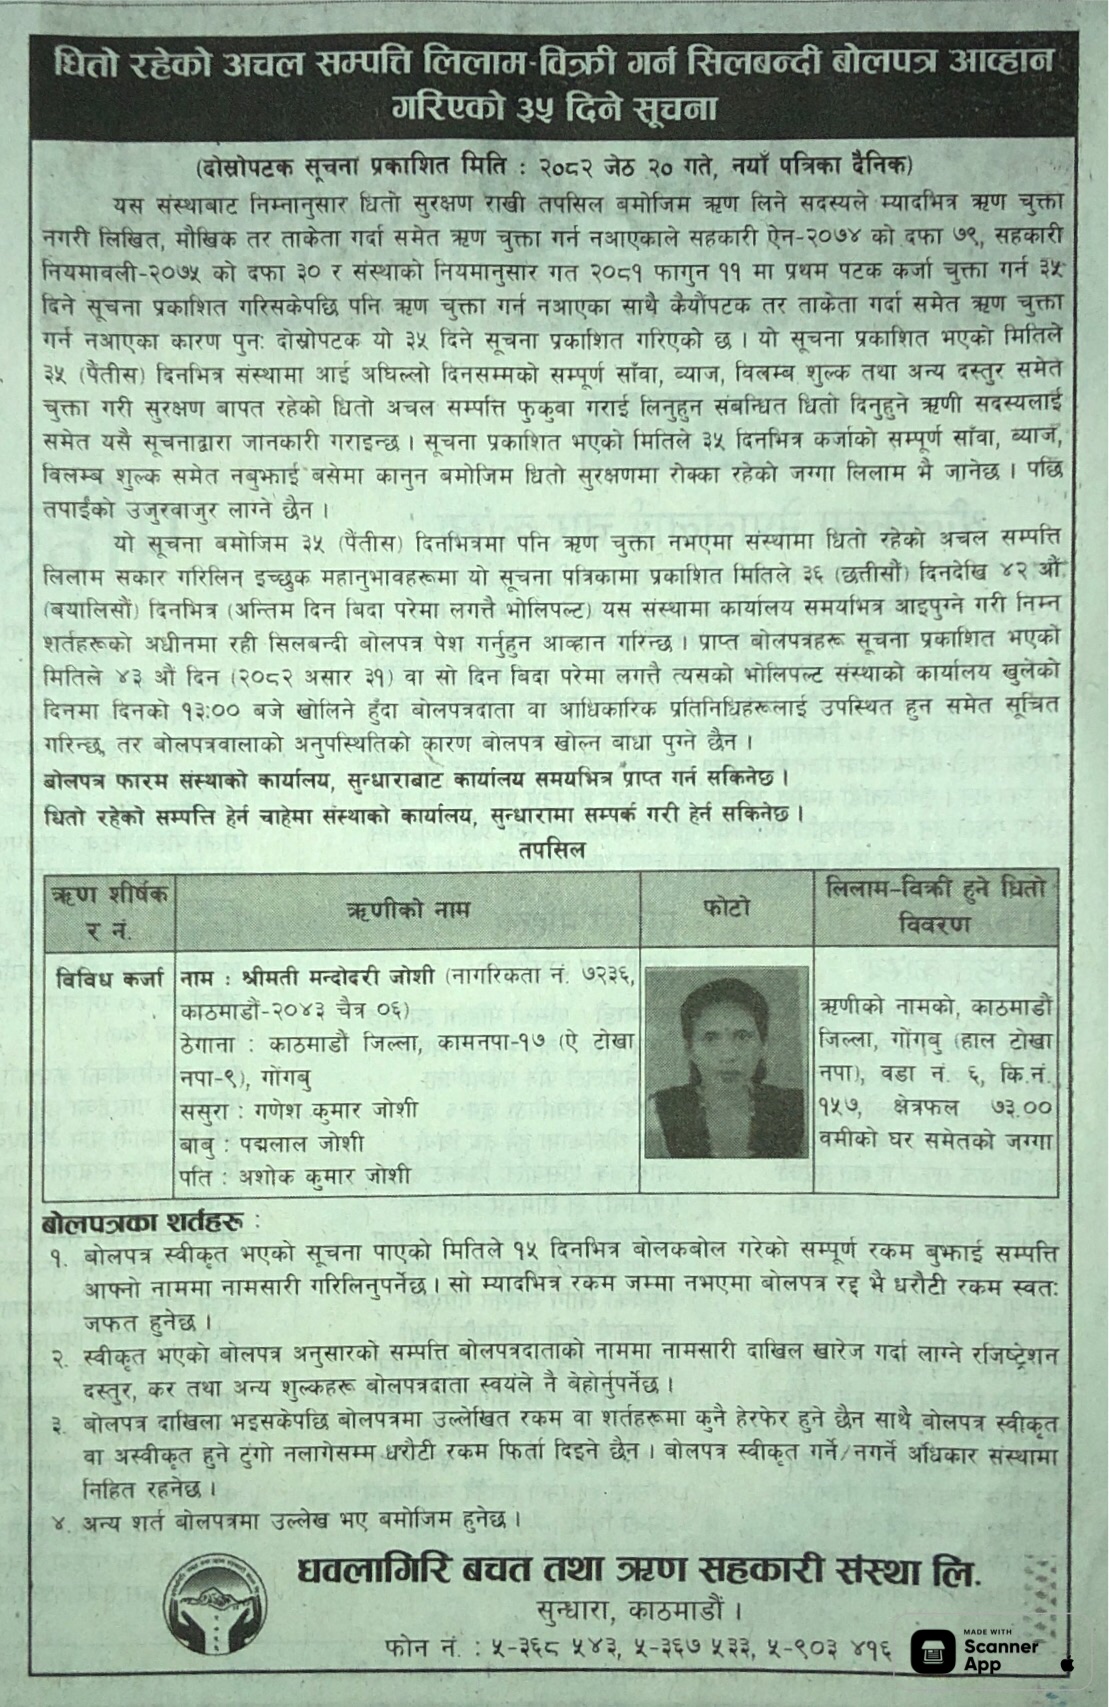 धितो रहेको अचल सम्पत्ति लिलाम-विक्री गर्न सिलबन्दी बोलपत्र आव्हान
गरिएको ३५ दिने सूचना
(दोस्रोपटक सूचना प्रकाशित मिति : २०८२ जेठ २० गते, नयाँ पत्रिका दैनिक)
यस संस्थाबाट निम्नानुसार धितो सुरक्षण राखी तपसिल बमोजिम ऋण लिने सदस्यले म्यादभित्र ऋण चुक्ता
नगरी लिखित, मौखिक तर ताकेता गर्दा समेत ऋण चुक्ता गर्न नआएकाले सहकारी ऐन-२०७४ को दफा ७९, सहकारी
नियमावली-२०७५ को दफा ३० र संस्थाको नियमानुसार गत २०८१ फागुन ११ मा प्रथम पटक कर्जा चुक्ता गर्न ३५
दिने सूचना प्रकाशित गरिसकेपछि पनि ऋण चुक्ता गर्न नआएका साथै कैयौंपटक तर ताकेता गर्दा समेत ऋण चुक्ता
गर्न नआएका कारण पुनः दोस्रोपटक यो ३५ दिने सूचना प्रकाशित गरिएको छ । यो सूचना प्रकाशित भएको मितिले
३५ (पैंतीस) दिनभित्र संस्थामा आई अघिल्लो दिनसम्मको सम्पूर्ण साँवा, ब्याज, विलम्ब शुल्क तथा अन्य दस्तुर समेत
चुक्ता गरी सुरक्षण बापत रहेको धितो अचल सम्पत्ति फुकुवा गराई लिनुहुन संबन्धित धितो दिनुहुने ऋणी सदस्यलाई
समेत यसै सूचनाद्वारा जानकारी गराइन्छ । सूचना प्रकाशित भएको मितिले ३५ दिनभित्र कर्जाको सम्पूर्ण साँवा, ब्याज,
विलम्ब शुल्क समेत नबुझाई बसेमा कानुन बमोजिम धितो सुरक्षणमा रोक्का रहेको जग्गा लिलाम भै जानेछ । पछि
तपाईंको उजुरवाजुर लाग्ने छैन ।
यो सूचना बमोजिम ३५ (पैंतीस) दिनभित्रमा पनि ऋण चुक्ता नभएमा संस्थामा धितो रहेको अचल सम्पत्ति
लिलाम सकार गरिलिन इच्छुक महानुभावहरूमा यो सूचना पत्रिकामा प्रकाशित मितिले ३६ (छत्तीसौं) दिनदेखि ४२ औं
(बयालिसौं) दिनभित्र (अन्तिम दिन बिदा परेमा लगत्तै भोलिपल्ट) यस संस्थामा कार्यालय समयभित्र आइपुग्ने गरी निम्न
शर्तहरूको अधीनमा रही सिलबन्दी बोलपत्र पेश गर्नुहुन आव्हान गरिन्छ । प्राप्त बोलपत्रहरू सूचना प्रकाशित भएको
मितिले ४३ औं दिन (२०८२ असार ३१) वा सो दिन बिदा परेमा लगत्तै त्यसको भोलिपल्ट संस्थाको कार्यालय खुलेको
दिनमा दिनको १३:०० बजे खोलिने हुँदा बोलपत्रदाता वा आधिकारिक प्रतिनिधिहरूलाई उपस्थित हुन समेत सूचित
गरिन्छ, तर बोलपत्रवालाको अनुपस्थितिको कारण बोलपत्र खोल्न बाधा पुग्ने छैन ।
बोलपत्र फारम संस्थाको कार्यालय, सुन्धाराबाट कार्यालय समयभित्र प्राप्त गर्न सकिनेछ ।
धितो रहेको सम्पत्ति हेर्न चाहेमा संस्थाको कार्यालय, सुन्धारामा सम्पर्क गरी हेर्न सकिनेछ ।
तपसिल
ऋण शीर्षक र नं. ऋणीको नाम फोटो लिलाम-विक्री हुने धितो विवरण
विविध कर्जा
नाम : श्रीमती मन्दोदरी जोशी (नागरिकता नं. ७२३६,
काठमाडौं-२०४३ चैत्र ०६)
ठेगाना : काठमाडौं जिल्ला, कामनपा-१७ (ऐ टोखा
नपा-९), गोंगबु
ससुरा : गणेश कुमार जोशी
बाबु : पद्मलाल जोशी
पति : अशोक कुमार जोशी
ऋणीको नामको, काठमाडौं
जिल्ला, गोंगबु (हाल टोखा
नपा), वडा नं. ६, कि.नं.
१५७, क्षेत्रफल ७३.००
वमीको घर समेतको जग्गा
बोलपत्रका शर्तहरू :
१. बोलपत्र स्वीकृत भएको सूचना पाएको मितिले १५ दिनभित्र बोलकबोल गरेको सम्पूर्ण रकम बुझाई सम्पत्ति
आफ्नो नाममा नामसारी गरिलिनुपर्नेछ । सो म्यादभित्र रकम जम्मा नभएमा बोलपत्र रद्द भै धरौटी रकम स्वतः
जफत हुनेछ ।
२. स्वीकृत भएको बोलपत्र अनुसारको सम्पत्ति बोलपत्रदाताको नाममा नामसारी दाखिल खारेज गर्दा लाग्ने रजिष्ट्रेशन
दस्तुर, कर तथा अन्य शुल्कहरू बोलपत्रदाता स्वयंले नै बेहोर्नुपर्नेछ ।
३. बोलपत्र दाखिला भइसकेपछि बोलपत्रमा उल्लेखित रकम वा शर्तहरूमा कुनै हेरफेर हुने छैन साथै बोलपत्र स्वीकृत
वा अस्वीकृत हुने टुंगो नलागेसम्म धरौटी रकम फिर्ता दिइने छैन । बोलपत्र स्वीकृत गर्ने/नगर्ने अधिकार संस्थामा
निहित रहनेछ ।
४. अन्य शर्त बोलपत्रमा उल्लेख भए बमोजिम हुनेछ ।
धवलागिरि बचत तथा ऋण सहकारी संस्था लि.
सुन्धारा, काठमाडौं ।
फोन नं. : ५-३६८ ५४३, ५-३६७ ५३३, ५-९०३ ४१६
MADE WITH
Scanner
App